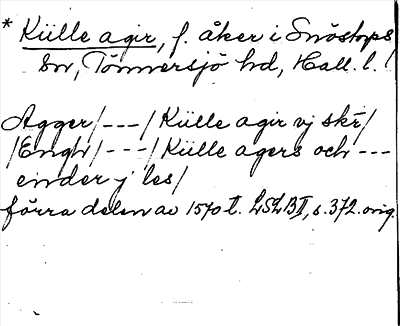 * Külle agir, f. åker i Snöstorps
sn, Tönnersjö hd, Hall. l. !
Agger / --- / Külle agir vj skr /
/ Engh / --- / Külle agers och ---
ender j les /
förra delen av 1570 t. LSLB II, s. 372. orig.